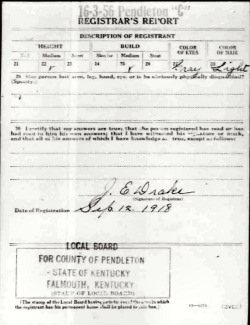 16-3-56 Pendleton "C"
REGISTRAR'S REPORT
DESCRIPTION OF REGISTRANT
HEIGHT BUILD COLOR OF EYES COLOR OF HAIR
Tall Medium Short Slender Medium Stout
21 22 23 24 25 26 27 28
Gray Light
29 Has person lost arm, leg, hand, eye, or is he obviously physically disqualified?
(Specify.)
30 I certify that my answers are true; that the person registered has read or has
had read to him his own answers; that I have witnessed his signature or mark,
and that all of his answers of which I have knowledge are true, except as follows:
J. E Drake
(Signature of Registrar)
Date of Registration Sep. 12 1918
LOCAL BOARD
FOR COUNTY OF PENDLETON
STATE OF KENTUCKY
FALMOUTH, KENTUCKY
(STAMP OF LOCAL BOARD)
(The stamp of the Local Board having jurisdiction of the area in which
the registrant has his permanent home shall be placed in this box.)
(OVER)